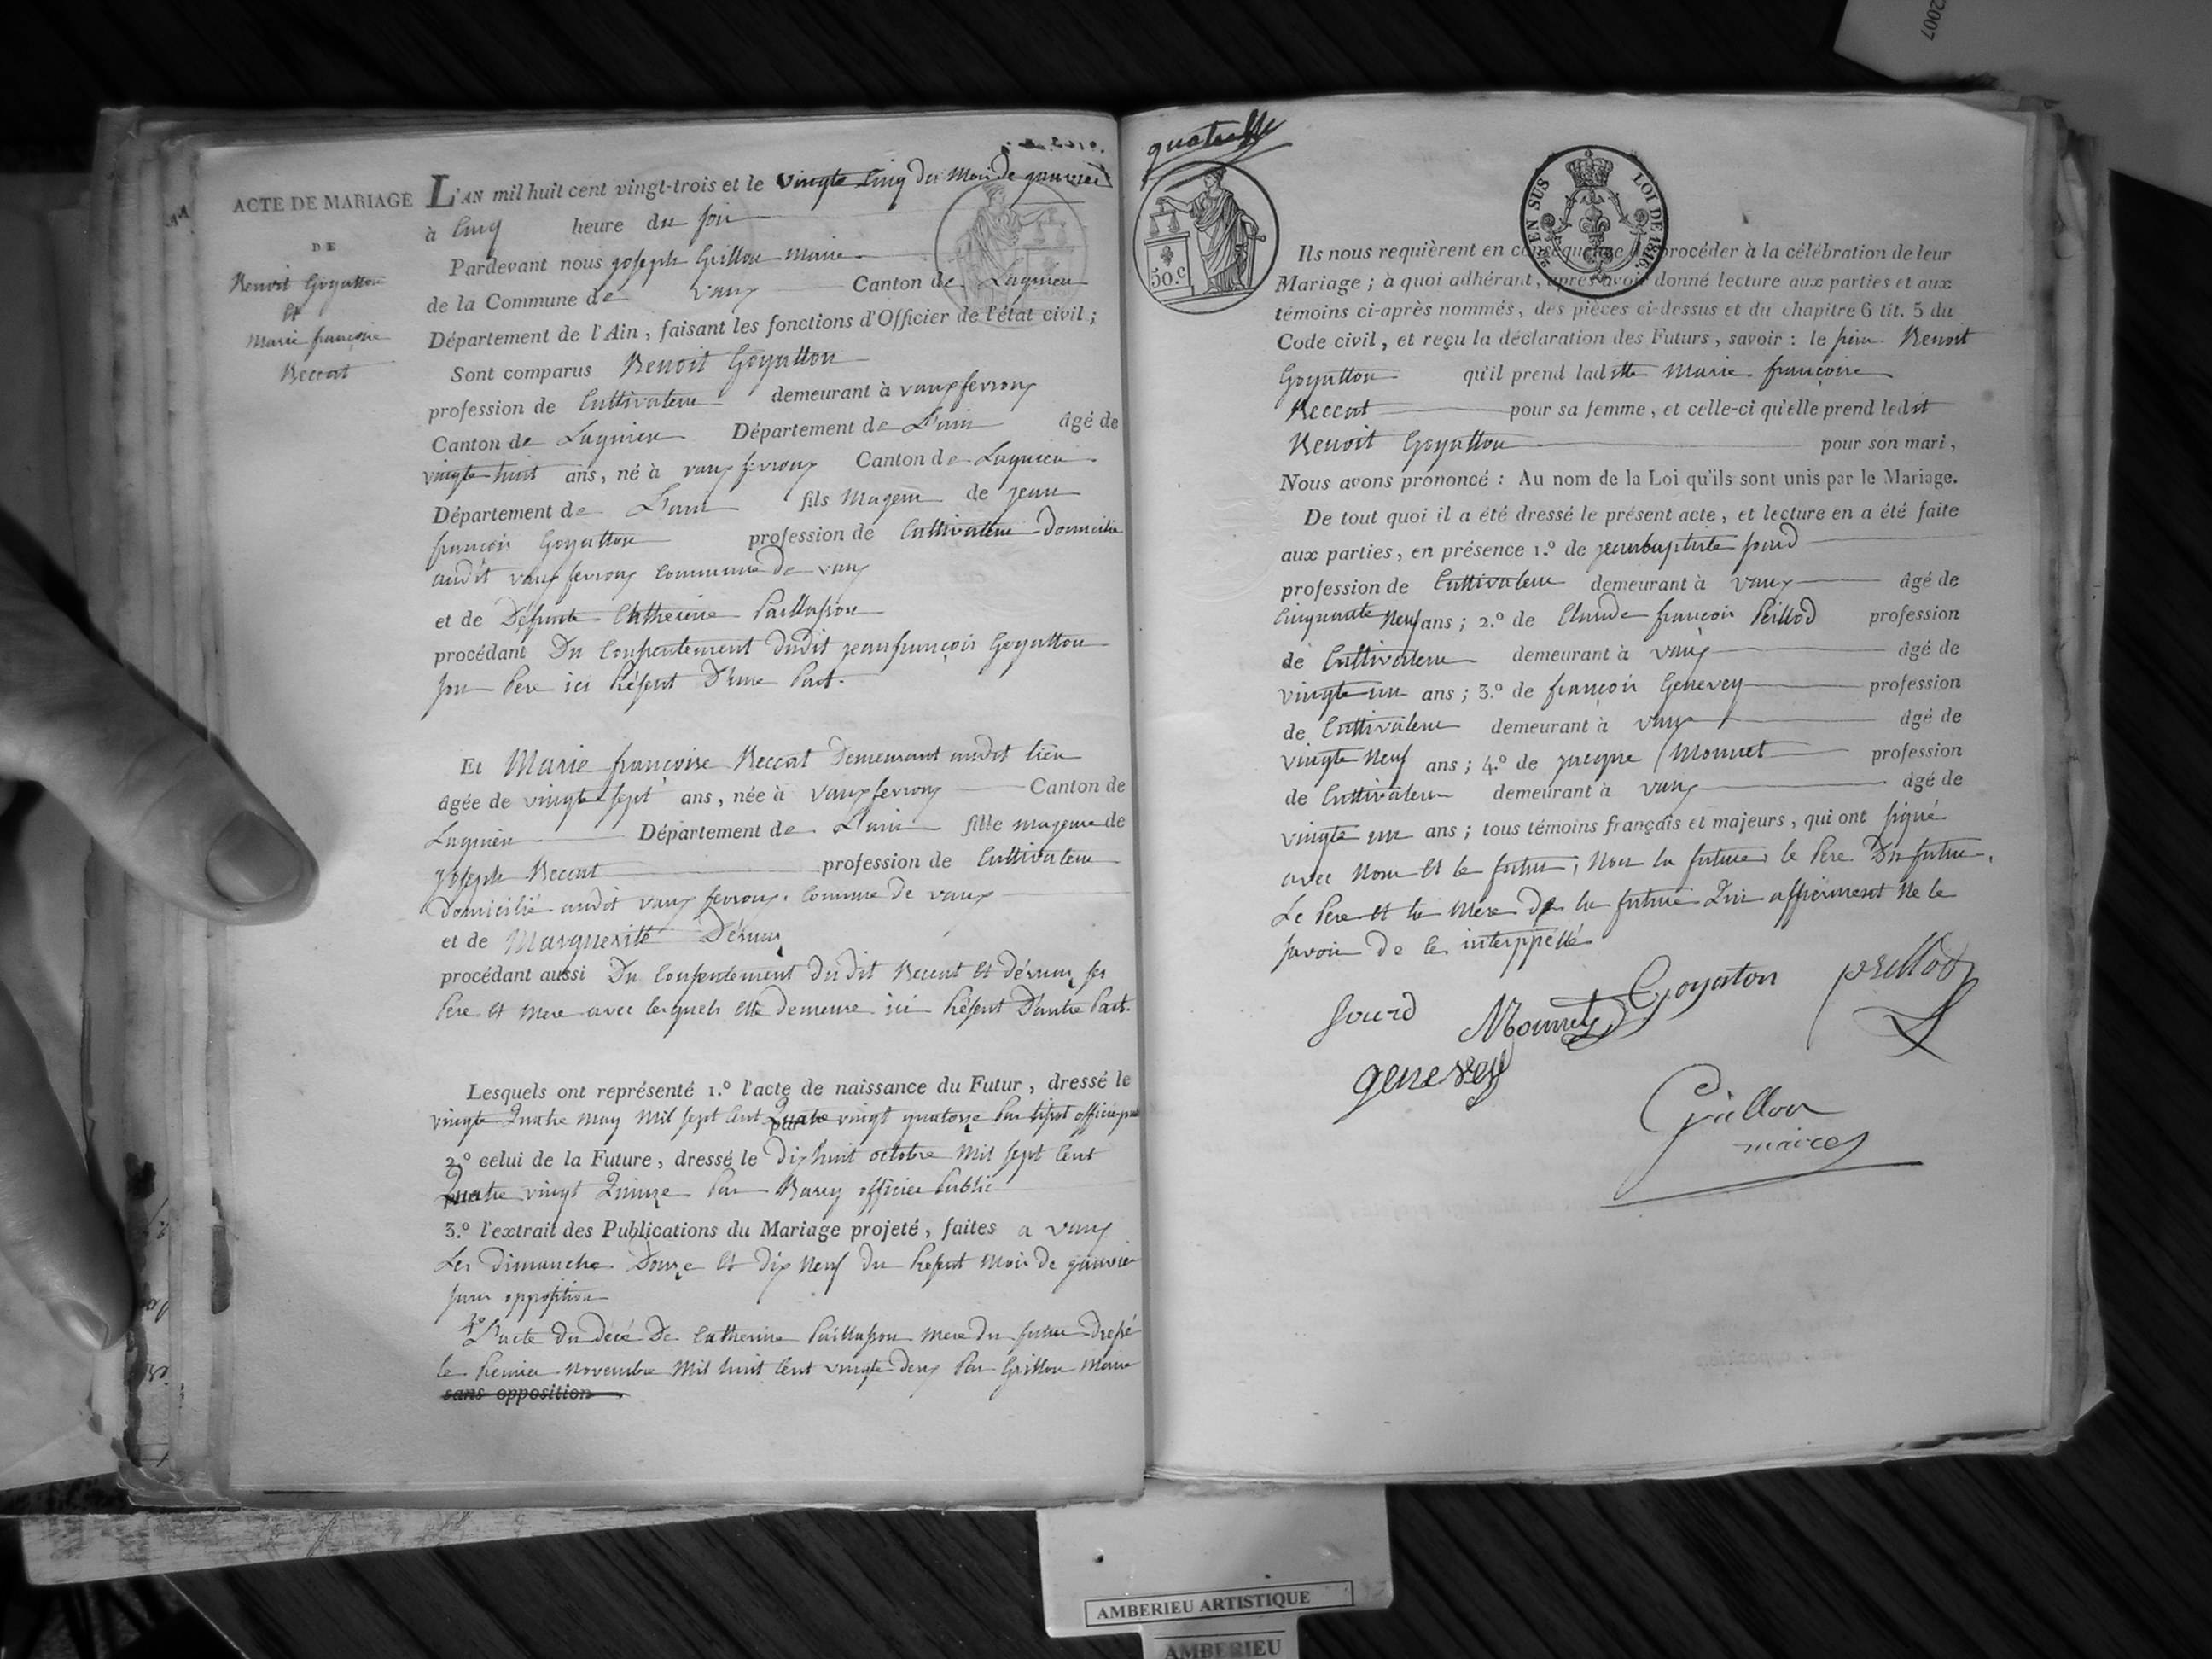 ACTE DE MARIAGE
DE
Benoit Goyatton
et
Marie françoise
Beccat
L'AN mil huit cent vingt-trois et le vingte Cinq du Mois de janvier
à Cinq heure du soir
Pardevant nous joseph Grillon maire
de la Commune de vaux Canton de Lagnieu
Département de l'Ain, faisant les fonctions d'Officier de l'état civil ;
Sont comparus Benoit Goyatton
profession de Cultivateur demeurant à vaux fevroux
Canton de Lagnieu Département de L'ain âgé de
vingte huit ans, né à vaux fevroux Canton de Lagnieu
Département de L'ain fils Mageur de jean
françois Goyatton profession de Cultivateur domicilié
audit vaux fevroux Commune de vaux
et de Défunte Catherine Paillasson
procédant Du Consentement dudit jean françois Goyatton
son Pere ici Présent D'une Part.
Et Marie françoise Beccat Demeurant audit lieu
âgée de vingte sept ans, née à vaux fevroux Canton de
Lagnieu Département de L'ain fille mageure de
joseph Beccat profession de Cultivateur
Domicilié audit vaux fevroux Commune de vaux
et de Marguerite
procédant aussi Du Consentement du dit Beccat et ses
Pere et Mere avec lesquels elle demeure ici Présent D'autre Part.
Lesquels ont représenté 1.º l'acte de naissance du Futur, dressé le
vingte Quatre may Mil sept Cent Quatre vingt quatorze Par officier
2.º celui de la Future, dressé le dix huit octobre Mil sept Cent
Quatre vingt Quinze Par officier Public
3.º l'extrait des Publications du Mariage projeté, faites a vaux
Les dimanche Douze et dix Neuf du Présent Mois de janvier
sans opposition
4º L'acte du décé De Catherine Paillasson mere du futur Dressé
le Premier Novembre Mil huit Cent vingte deux Par Grillon Maire
sans opposition
2007
50.c
EN SUS LOI DE 1816.
Ils nous requièrent en conséquence de procéder à la célébration de leur
Mariage ; à quoi adhérant, après avoir donné lecture aux parties et aux
témoins ci-après nommés, des pièces ci-dessus et du chapitre 6 tit. 5 du
Code civil, et reçu la déclaration des Futurs, savoir : le Benoit
Goyatton qu'il prend laditte Marie françoise
Beccat pour sa femme, et celle-ci qu'elle prend ledit
Benoit Goyatton pour son mari,
Nous avons prononcé : Au nom de la Loi qu'ils sont unis par le Mariage.
De tout quoi il a été dressé le présent acte, et lecture en a été faite
aux parties, en présence 1.º de jean baptiste sourd
profession de Cultivateur demeurant à vaux âgé de
Cinquante Neuf ans ; 2.º de Claude françois Peillod profession
de Cultivateur demeurant à vaux âgé de
vingte un ans ; 3.º de françois Genevey profession
de Cultivateur demeurant à vaux âgé de
vingte Neuf ans ; 4.º de jacque Monnet profession
de Cultivateur demeurant à vaux âgé de
vingte un ans ; tous témoins français et majeurs, qui ont signé
avec Nous et le futur, Non la future le Pere Du futur,
Le Pere et la Mere de la future Qui affirment Ne le
savoir De ce interppellé
Sourd Monnet Goyaton peillod
genevey
Grillon
maire
AMBERIEU ARTISTIQUE
AMBERIEU